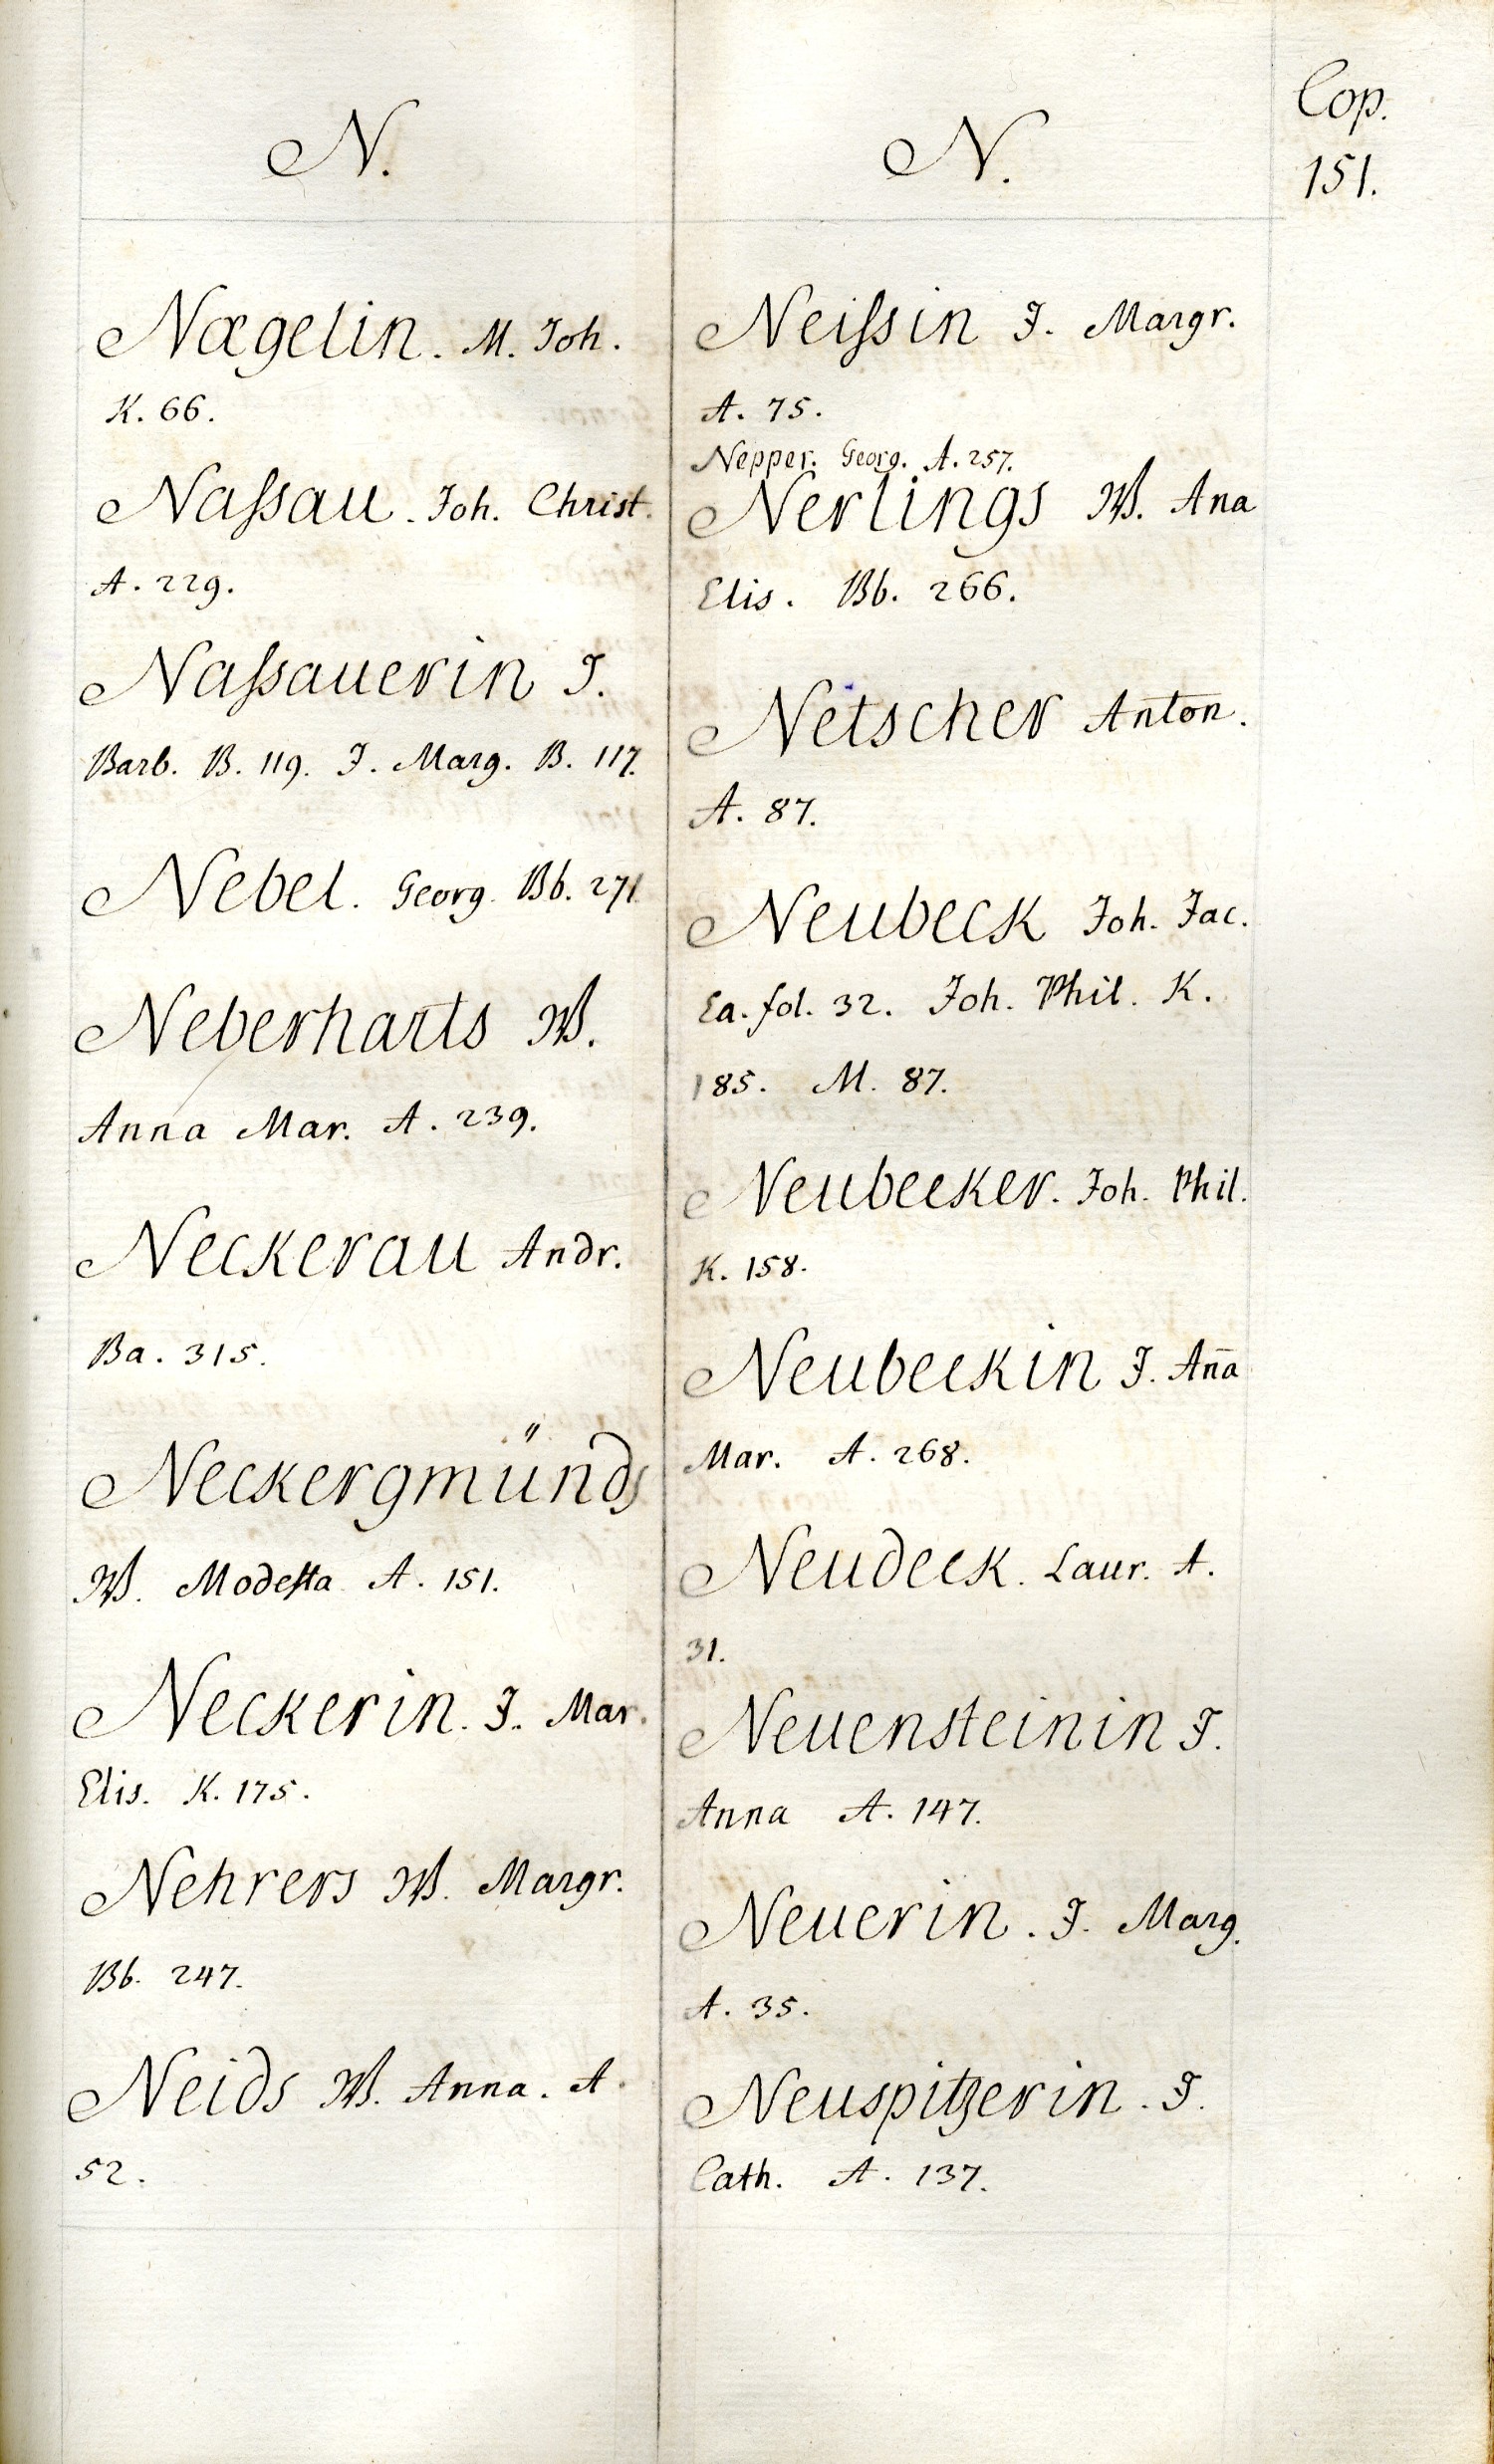 Cop.
151.
N.
Nægelin. M. Joh.
K. 66.
Naſsau. Joh. Christ.
A. 229.
Naſsauerin J.
Barb. B. 119. J. Marg. B. 117.
Nebel. Georg. Bb. 271
Neberharts W.
Anna Mar. A. 239.
Neckerau Andr.
Ba. 315.
Neckergmünds
W. Modesta A. 151.
Neckerin. J. Mar.
Elis. K. 175.
Nehrers W. Margr.
Bb. 247.
Neids W. Anna. A.
52.
N.
Neiſsin J. Margr.
A. 75.
Nepper. Georg. A. 257.
Nerlings W. Ana
Elis. Bb. 266.
Netscher Anton.
A. 87.
Neubeck Joh. Jac.
Ea. fol. 32. Joh. Phil. K.
185. M. 87.
Neubecker. Joh. Phil.
K. 158.
Neubeckin J. An̄a
Mar. A. 268.
Neudeck. Laur. A.
31.
Neuensteinin J.
Anna A. 147.
Neuerin. J. Marg.
A. 35.
Neuspitzerin. J.
Cath. A. 137.